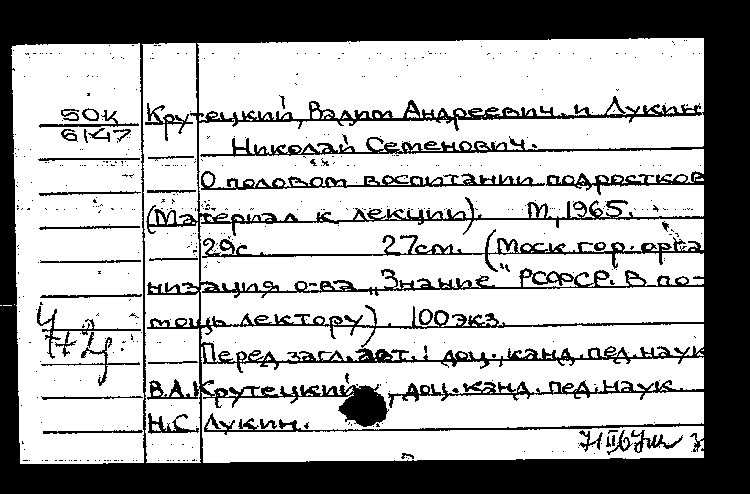 50К Крутецкий, Вадим Андреевич. и Лукин
61-47
Николай Семенович.
О половом воспитании подростков
(Материал к лекции). М., 1965.
29с. 27см. (Моск. гор. орга
низация о-ва „Знание" РСФСР. В по-
мощь лектору). 100 экз.
Перед загл. авт.: доц., канд. пед. наук
В.А. Крутецкий, доц. канд. пед. наук
Н.С. Лукин.